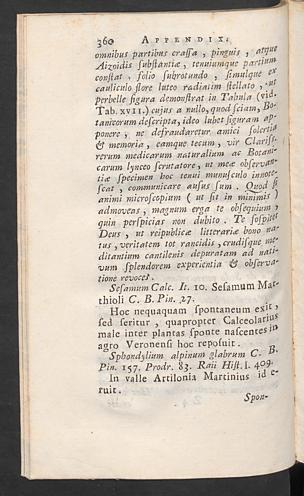 360 APPENDIX.
omnibus partibus crassa, pinguis, atque
Aizoidis substantiæ, tenuiumque partium
constat, folio subrotundo, simulque ex
cauliculo flore luteo radiatim stellato, ut
perbelle figura demonstrat in Tabula (vid.
Tab. XVII.) cujus a nullo, quod sciam, Bo-
tanicorum descripta, ideo lubet figuram ap-
ponere, ne defraudaretur amici solertia
& memoria, eamque tecum, vir Clariss.
rerum medicarum naturalium ac Botani-
carum lynceo scrutatore, ut meæ observan-
tiæ specimen hoc tenui munusculo innote-
scat, communicare ausus sum. Quod si
animi microscopium (ut fit in minimis)
admovens, magnum erga te obsequium,
quin perspicias non dubito. Te sospitet
Deus, ut reipublicæ litterariæ bono na-
tus, veritatem tot rancidis, crudisque me-
ditantium cantilenis depuratam ad nati-
vum splendorem experientia & observa-
tione revoces.
Sesamum Cæsc. It. 10. Sesamum Mat-
thioli C. B. Pin. 27.
Hoc nequaquam spontaneum exit,
sed seritur, quapropter Calceolarius
male inter plantas sponte nascentes in
agro Veronensi hoc reposuit.
Sphondylium alpinum glabrum C. B.
Pin. 157. Prodr. 83. Raii Hist. I. 409.
In valle Artilonia Martinius id e-
ruit.
Spon-